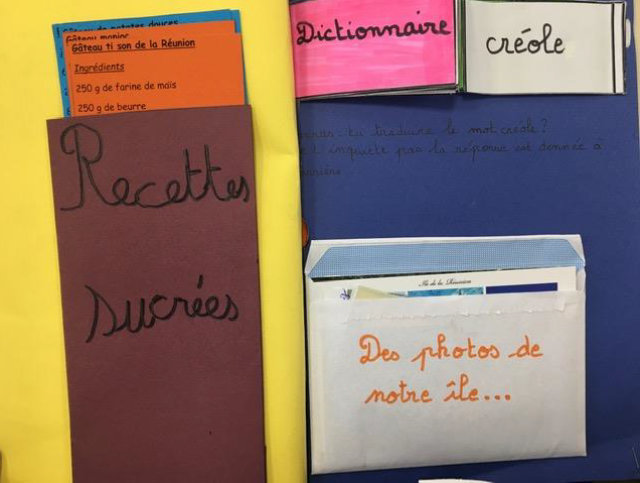 Gâteau de patates douces
Gâteau manioc
Gâteau ti son de la Réunion
Ingrédients
250 g de farine de maïs
250 g de beurre
Recettes
sucrées
Dictionnaire
créole
tu traduire le mot créole ?
inquiète pas la réponse est donnée à
Île de la Réunion
Des photos de
notre île...